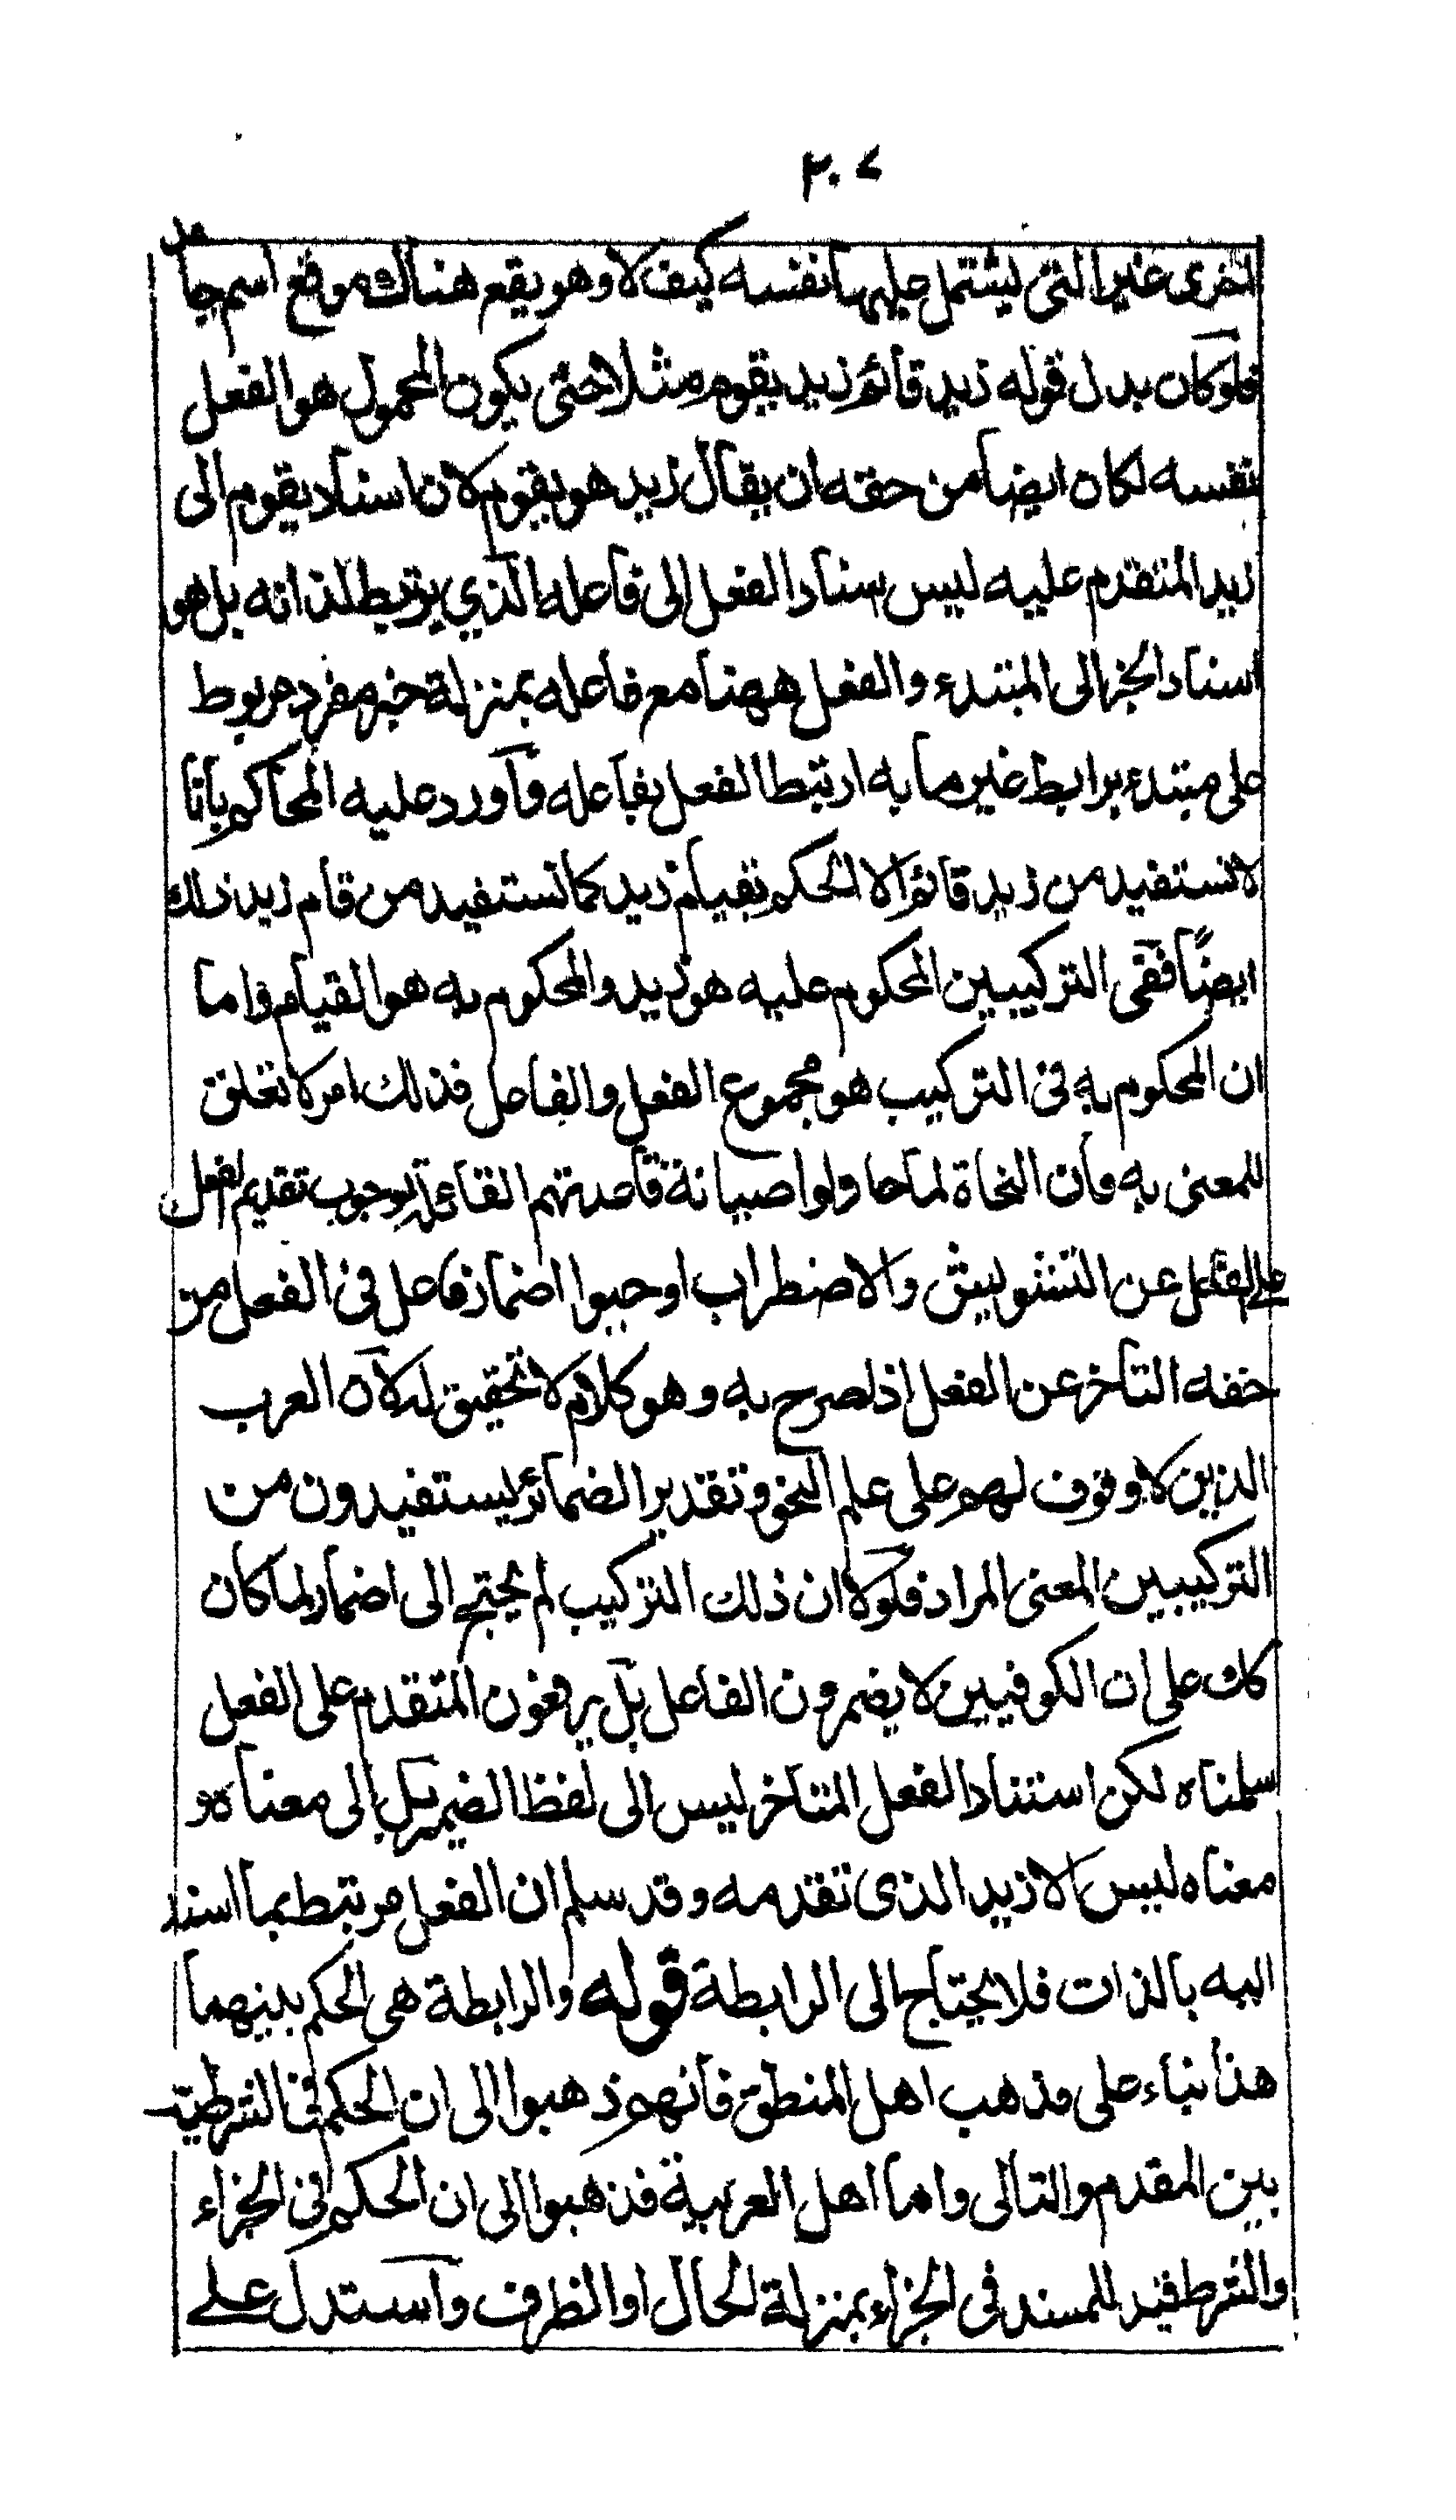 ٢٠٧
اخرى غير التى يشتمل عليها نفسه كيف لا وهو يقع هناك موقع اسم جامد
فلو كان بدل قوله زيد قائم زيد يقوم مثلا حتى يكون المحمول هو الفعل
نفسه لكان ايضا من حقه ان يقال زيد هو يقوم لان اسناد يقوم الى
زيد المتقدم عليه ليس اسناد الفعل الى فاعله الذي يرتبط لذاته بل هو
اسناد الخبر الى المبتدء والفعل ههنا مع فاعله بمنزلة خبر مفرد مربوط
على مبتدء برابط غير ما به ارتبط الفعل بفاعله واورد عليه المحاكم بانا
لا نستفيد من زيد قائم الا الحكم بقيام زيد كما نستفيد من قام زيد ذلك
ايضًا ففى التركيبين المحكوم عليه هو زيد والمحكوم به هو القيام واما
ان المحكوم به فى التركيب هو مجموع الفعل والفاعل فذلك امر لا تعلق
للمعنى به فان النحاة لما حاولوا صيانة قاعدتهم القائلة بوجوب تقديم الفعل
على الفاعل عن التشويش والاضطراب اوجبوا اضمار فاعل فى الفعل من
حقه التأخر عن الفعل اذا صرح به وهو كلام لا تحقيق له لان العرب
الذين لا وقوف لهم على علم النحو وتقدير الضمائر يستفيدون من
التركيبين المعنى المراد فلولا ان ذلك التركيب لم يحتج الى اضمار لما كان
كك على ان الكوفيين لا يضمرون الفاعل بل يرفعون المتقدم على الفعل
سلمناه لكن استناد الفعل المتاخر ليس الى لفظ الضمير بل الى معناه و
معناه ليس الا زيد الذى تقدمه وقد سلم ان الفعل مرتبط بما اسند
اليه بالذات فلا يحتاج الى الرابطة قوله والرابطة هى الحكم بينهما
هذا بناء على مذهب اهل المنطق فانهم ذهبوا الى ان الحكم فى الشرطية
بين المقدم والتالى واما اهل العربية فذهبوا الى ان الحكم فى الجزاء
والشرط قيد للمسند فى الجزاء بمنزلة الحال او الظرف واستدل على